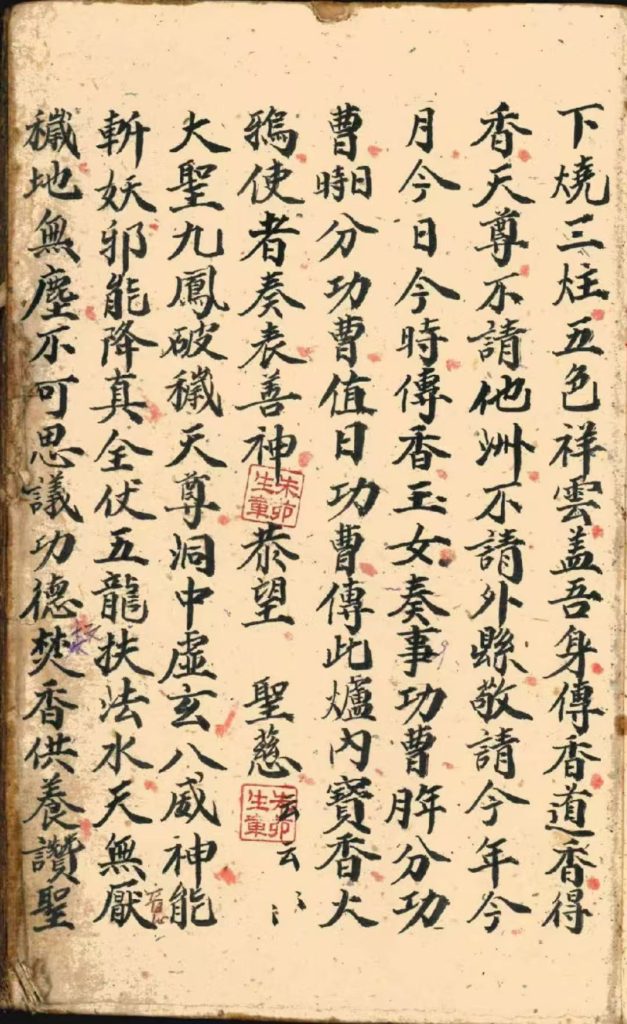 下燒三炷五色祥雲盖吾身傳香道香得
香天尊不請他州不請外縣敬請今年今
月今日今時傳香玉女奏事功曹年月分功
曹日時分功曹值日功曹傳此爐内寳香火
鴉使者奏表善神恭望 聖慈云云
大聖九鳳破穢天尊洞中虛玄八威神能
斬妖邪能降真全仗五龍扶法水天無厭
穢地無塵不可思議功德焚香供養讚聖